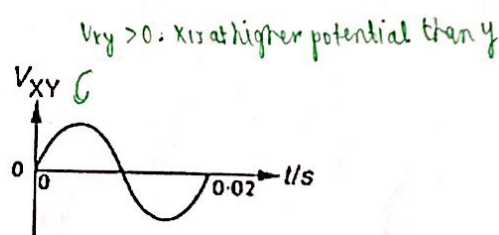 Vxy >0. X is at higher potential than y
VXY
0
0
0.02
t/s